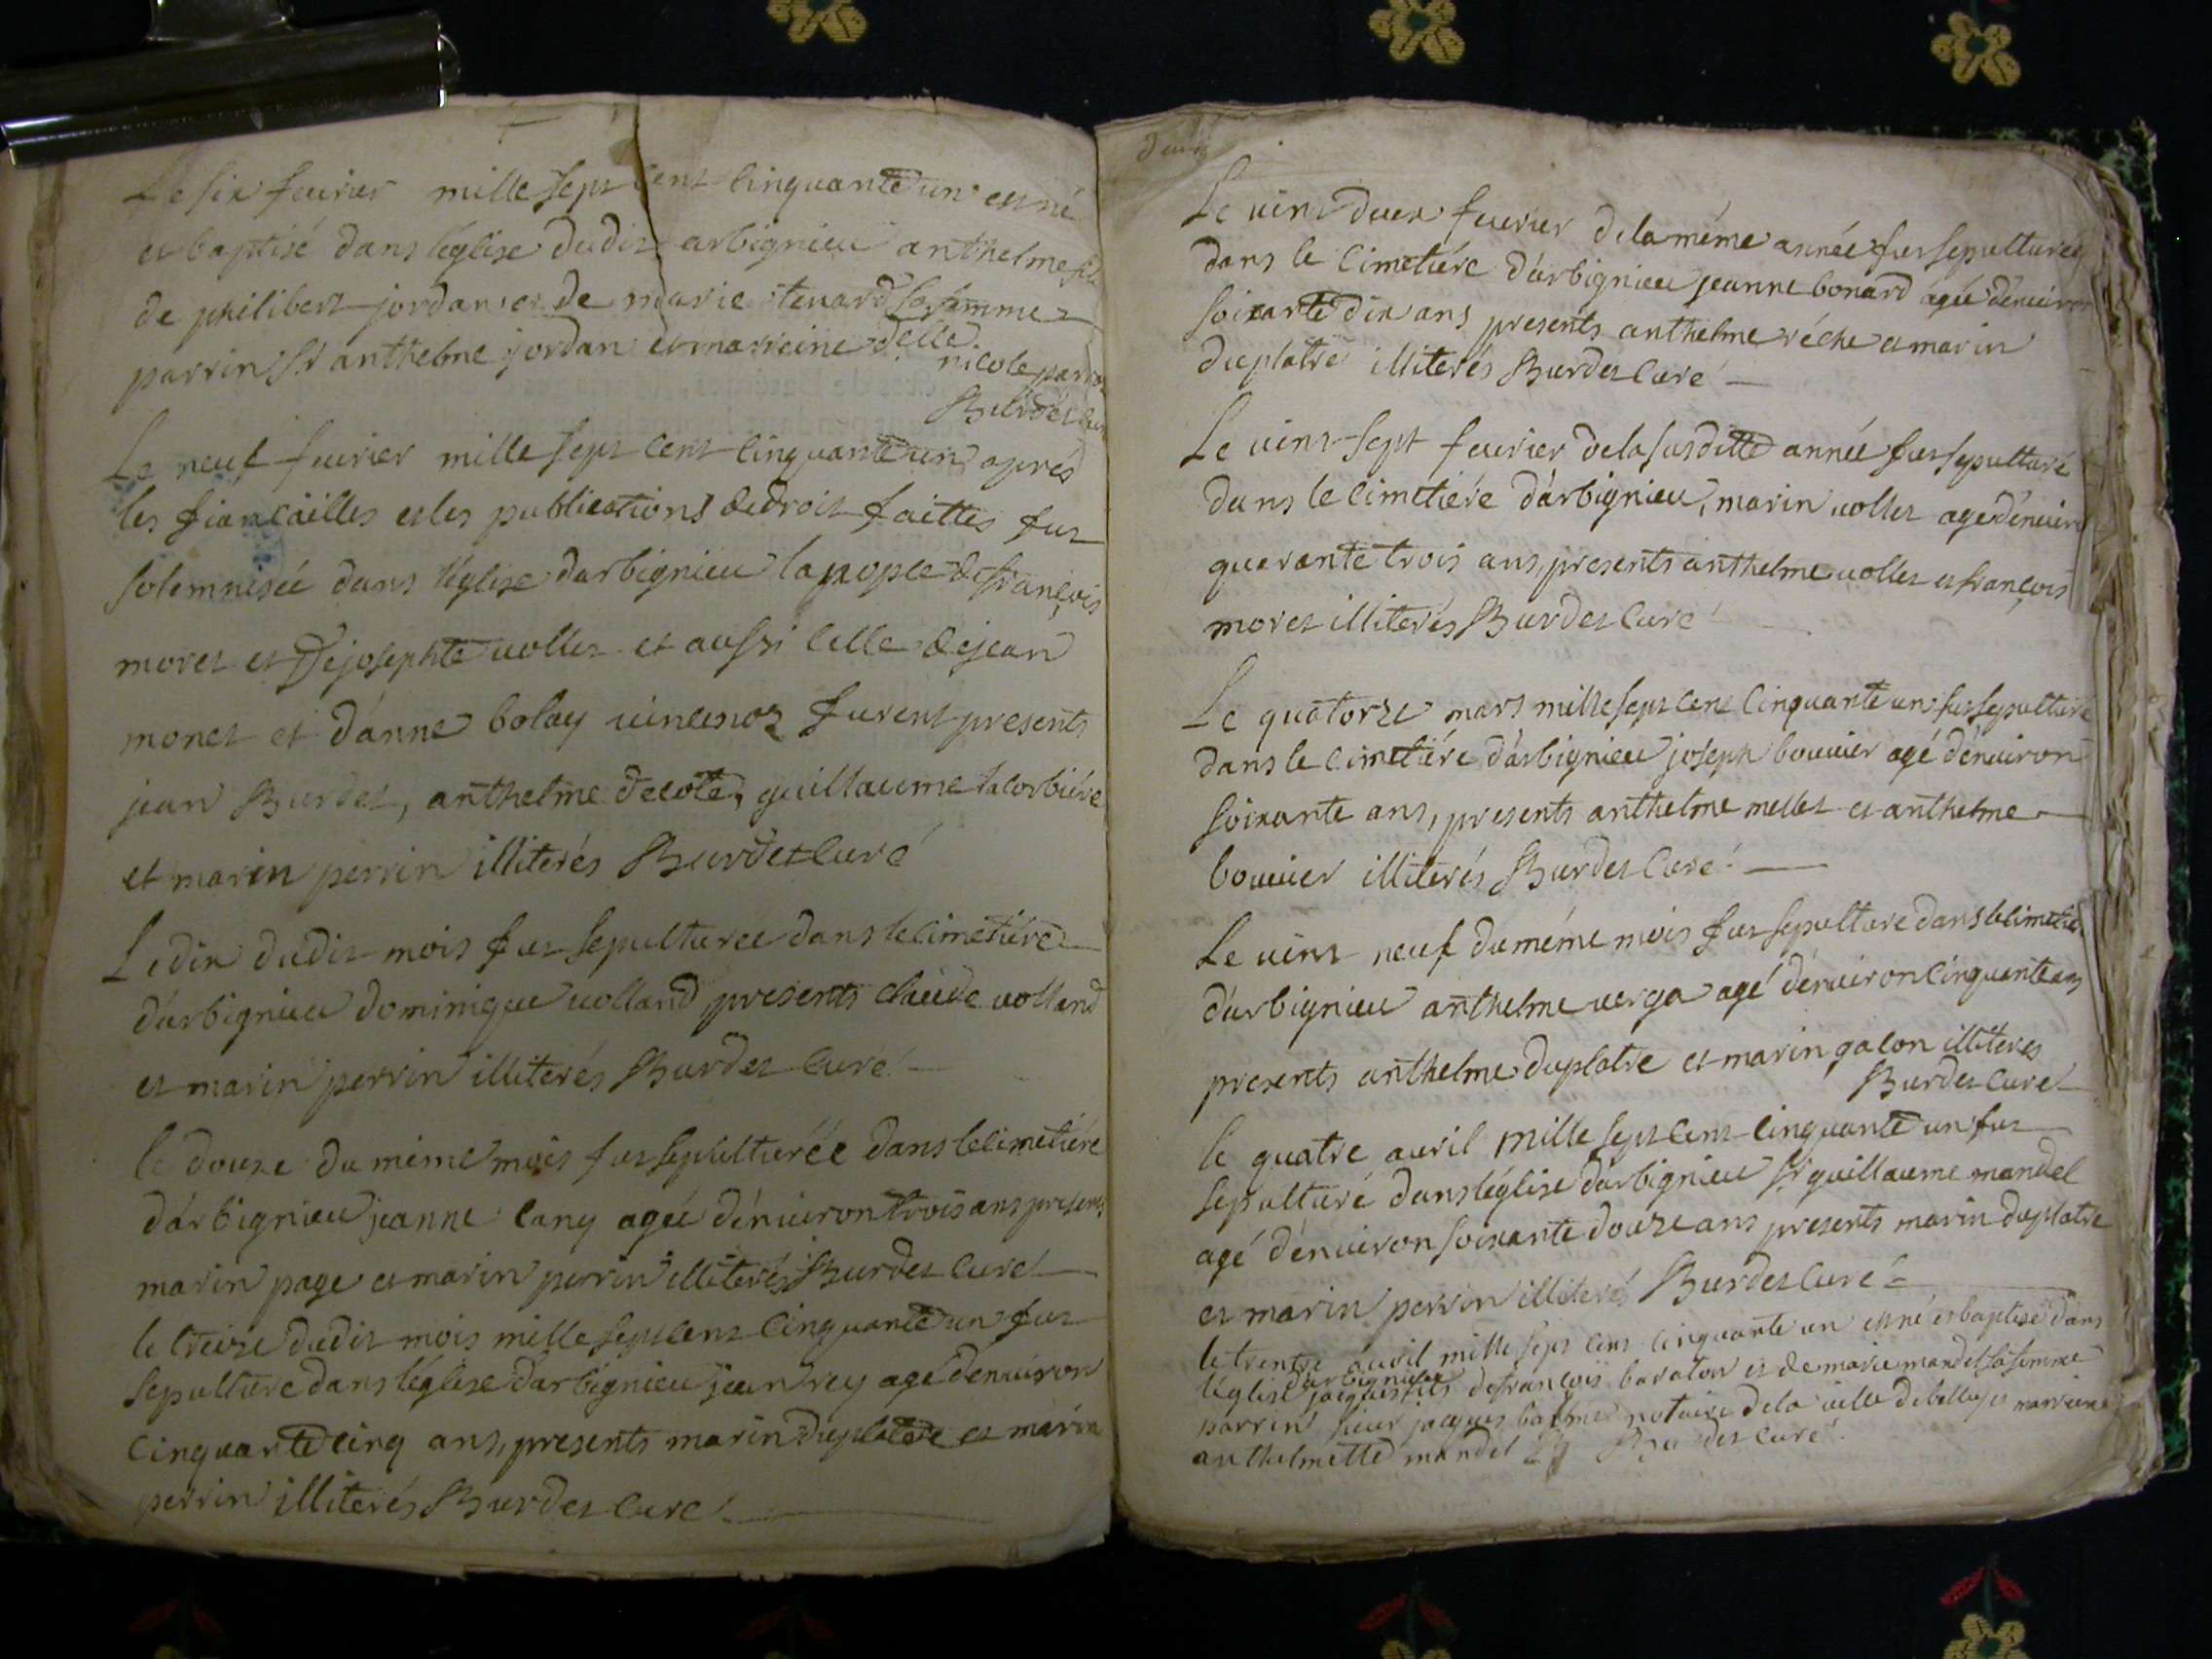 Le six feurier mille sept cent cinquante un est né
et baptisé dans léglise dudit arbignieu anthelme fils
de philibert jordan et de marie tenard sa femme
parrin Sr anthelme jordan et marreine delle
nicole
Burdet curé
Le neuf feurier mille sept cent cinquante un aprés
les fiancailles et les publications de droit faittes fut
solemnisée dans léglise darbignieu la nopce de françois
moret et de josephte uollet et aussi celle de jean
monet et d'anne bolay furent presents
jean Burdet, anthelme decote, guillaume lacorbiére
et marin perrin illiterés Burdet curé
Le dix dudit mois fut sepulturee dans le cimetiére
d'arbignieu dominique uolland presents claude uolland
et marin perrin illiterés Burdet curé
le douze du méme mois fut sepulturéé dans le cimetiére
d'arbignieu jeanne cany ageé d'enuiron trois ans presents
marin page et marin perrin illiterés Burdet curé
le treize dudit mois mille sept cent cinquante un fut
sepulturé dans léglise d'arbignieu jean rey agé d'enuiron
cinquante cinq ans, presents marin duplatre et marin
perrin illiterés Burdet curé
Le uint deux feurier de la méme année fut sepulturéé
dans le cimetiére d'arbignieu jeanne bonard agée d'enuiron
soixante dix ans presents anthelme réche et marin
duplatre illiterés Burdet curé
Le uint sept feurier de la susditte année fut sepulturé
dans le cimetiére d'arbignieu, marin uollet agé d'enuiron
quarante trois ans, presents anthelme uollet et françois
moret illiterés Burdet curé
Le quatorze mars mille sept cent cinquante un fut sepulturé
dans le cimetiére d'arbignieu joseph bouuier agé d'enuiron
soixante ans, presents anthelme mellet et anthelme
bouuier illiterés Burdet curé
Le uint neuf du méme mois fut sepulturé dans le cimetiére
d'arbignieu anthelme uerga agé d'enuiron cinquante ans
presents anthelme duplatre et marin galon illiterés
Burdet curé
le quatre auril mille sept cent cinquante un fut
sepulturé dans léglise d'arbignieu Sr guillaume mandel
agé d'enuiron soixante douze ans presents marin duplatre
et marin perrin illiterés Burdet curé
le trente auril mille sept cent cinquante un est né et baptisé dans
léglise d'arbignieu jacques fils de françois baraton et de marie mandel sa femme
parrein sieur jacques balme notaire de la uille de belley et marreine
anthelmette mandel Burdet curé